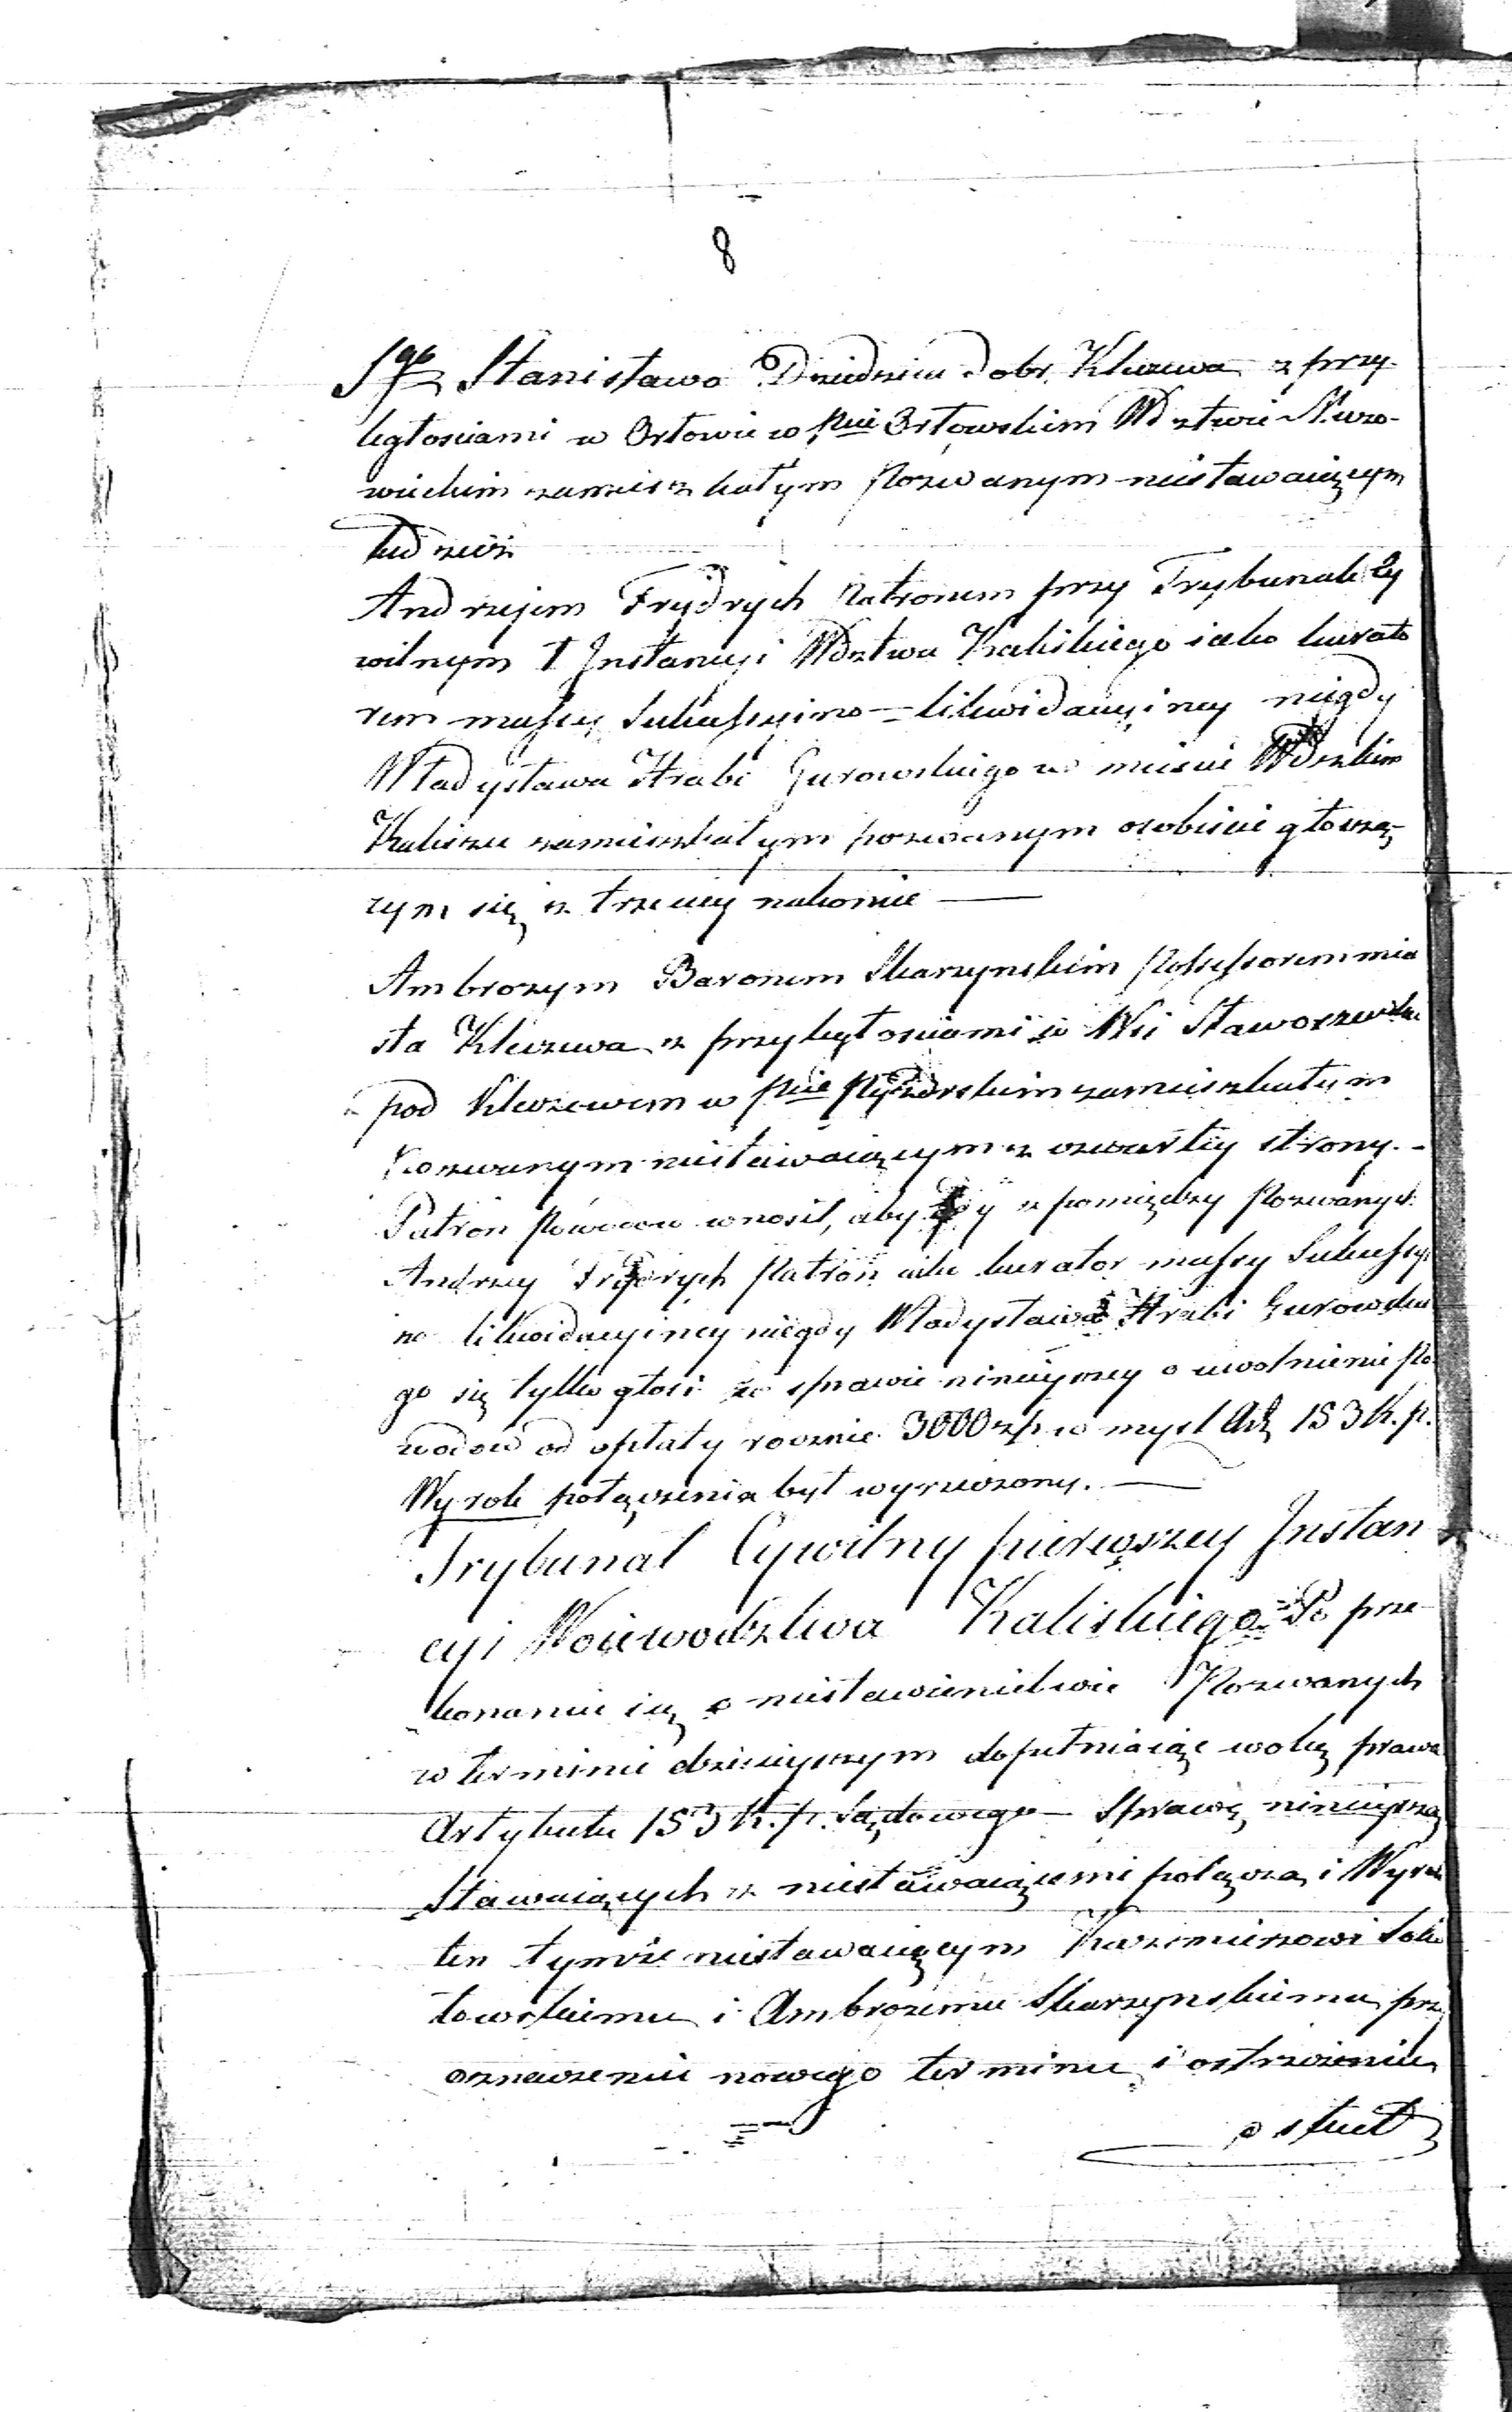 8
Sgo Stanisława Dziedzicu Dobr Kleczewa z przy-
ległościami w Orłowie w pcie Orłowskim Wdztwie Mazo-
wieckim zamieszkałym Pozwanym niestawaiącym
tudzież
Andrzejem Frydrych Patronem przy Trybunale Cy
wilnym I Instancyi Wdztwa Kaliskiego iako kurato
rem massy sukcessyino-likwidacyiney niegdy
Władysława Hrabi Gurowskiego w mieście Wdzkim
Kaliszu zamieszkałym pozwanym osobiście głoszą-
cym się z trzeciey nakoniec
Ambrozym Baronem Skarzynskim Possessorem mia
sta Kleczewa z przyległosciami w Wsi Sławoszewku
pod Kleczewem w pcie Pyzdrskim zamieszkałym
Pozwanym niestawaiącym z czwartey strony. -
Patron Powodow wnosił, aby gdy z pomiędzy Pozwanych
Andrzey Frydrych Patron iako kurator massy Sukcessyi
no likwidacyiney niegdy Władysława Hrabi Gurowskie
go się tylko głosi w sprawie ninieyszey o uwolnienie Po
wodów od opłaty rocznie 3000 zł w mysl Art 153 K. p.
Wyrok połączenia był wyrzeczony. —
Trybunał Cywilny pierwszey Instan
cyi Woiewodztwa Kaliskiego Po prze
konaniu się o niestawiennictwie Pozwanych
w terminie dzisieyszym dopełniaiąc wolę prawa
Artykułu 153 K. p. Sądowego — Sprawę ninieyszą
Stawaiących z niestawaiącemi połącza i Wyrok
ten tymże niestawaiącym Kazimierzowi Soko
łowskiemu i Ambrozemu Skarzynskiemu przy
oznaczeniu nowego terminu i ostrzeżeniu
o skut